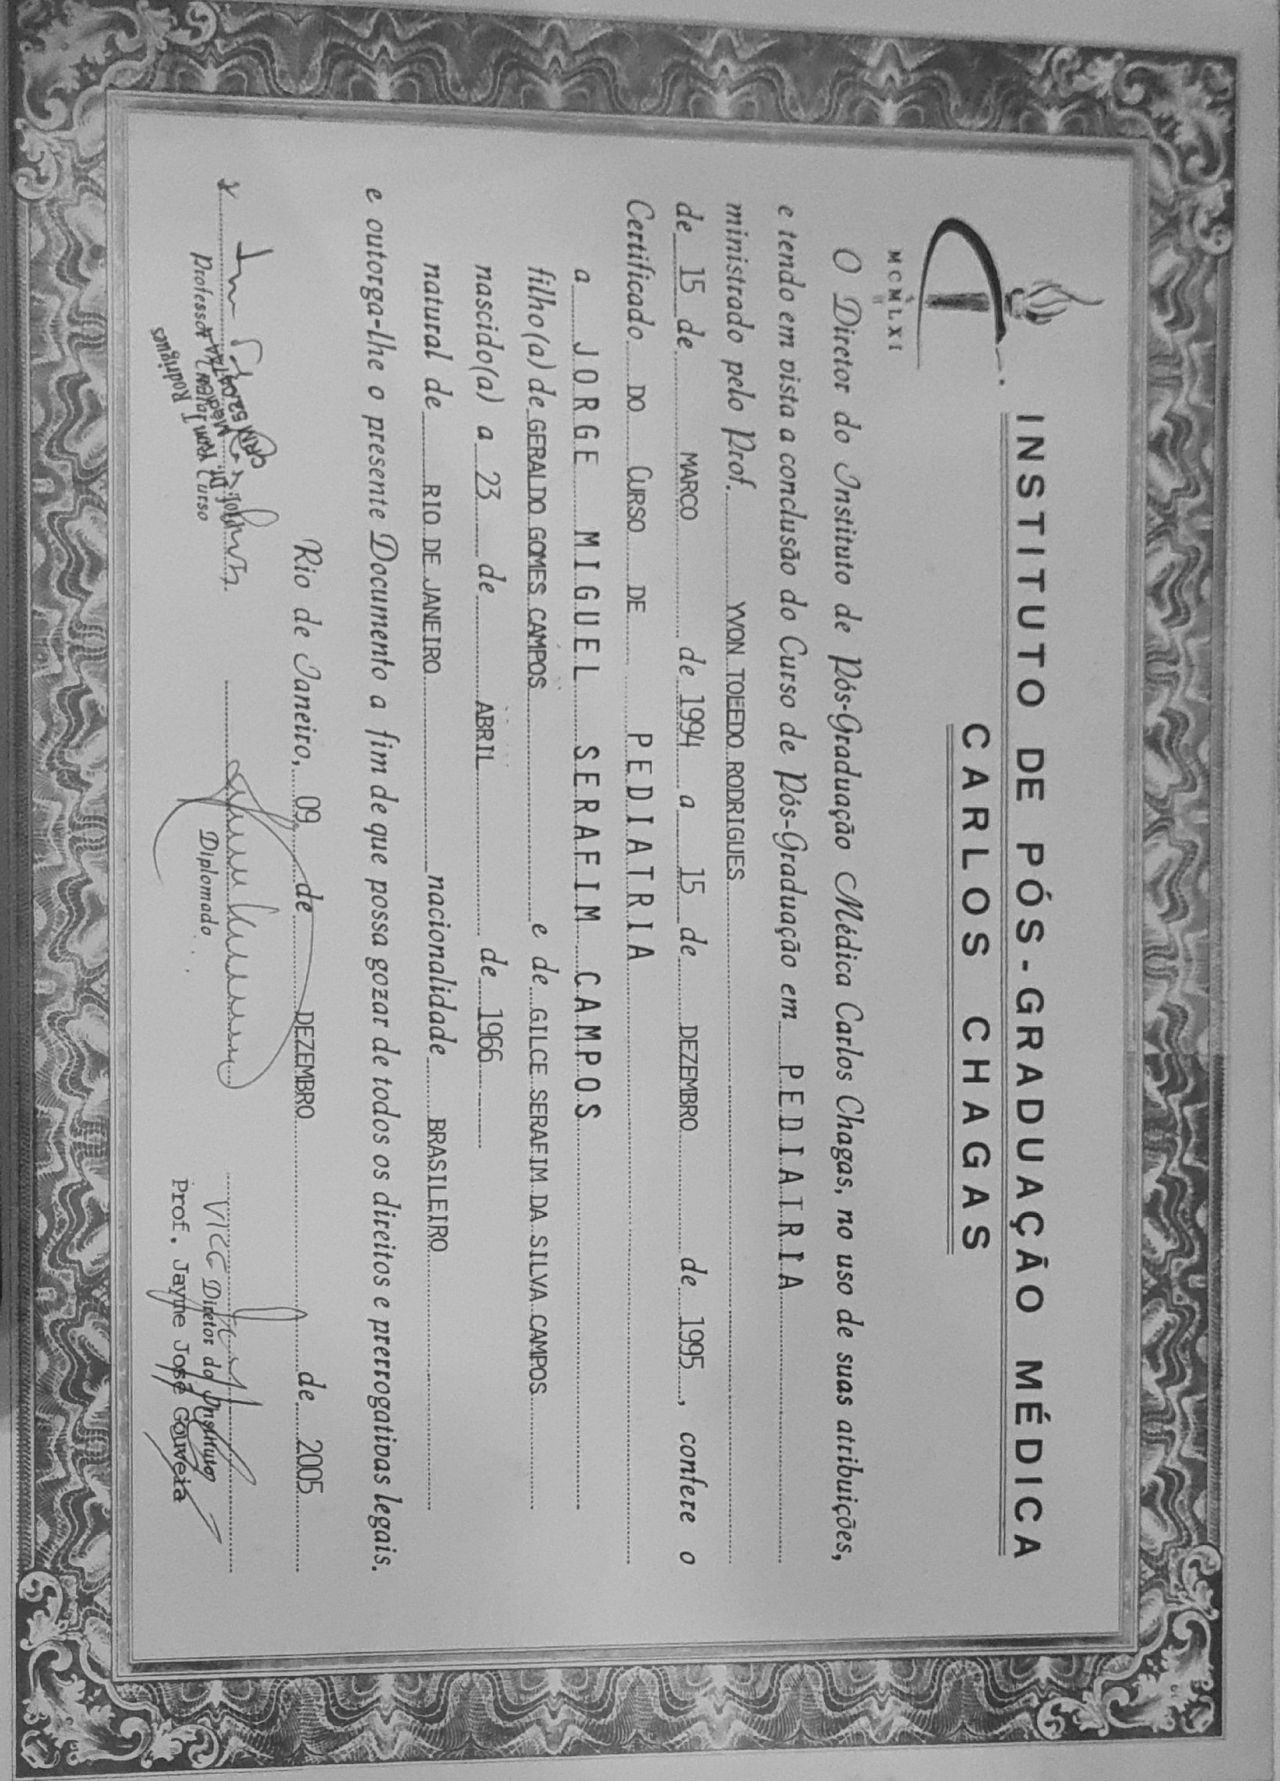 INSTITUTO DE PÓS-GRADUAÇÃO MÉDICA
CARLOS CHAGAS
MCMLXI
O Diretor do Instituto de Pós-Graduação Médica Carlos Chagas, no uso de suas atribuições,
e tendo em vista a conclusão do Curso de Pós-Graduação em PEDIATRIA
ministrado pelo Prof. YVON TOLEDO RODRIGUES
de 15 de MARCO de 1994 a 15 de DEZEMBRO de 1995, confere o
Certificado DO CURSO DE PEDIATRIA
a JORGE MIGUEL SERAFIM CAMPOS
filho(a) de GERALDO GOMES CAMPOS e de GILCE SERAFIM DA SILVA CAMPOS
nascido(a) a 23 de ABRIL de 1966
natural de RIO DE JANEIRO nacionalidade BRASILEIRO
e outorga-lhe o presente Documento a fim de que possa gozar de todos os direitos e prerrogativas legais.
Rio de Janeiro, 09 de DEZEMBRO de 2005
Professor Curso
Rodrigues
Diplomado
VICE Diretor do Instituto
Prof. Jayme José Gouveia